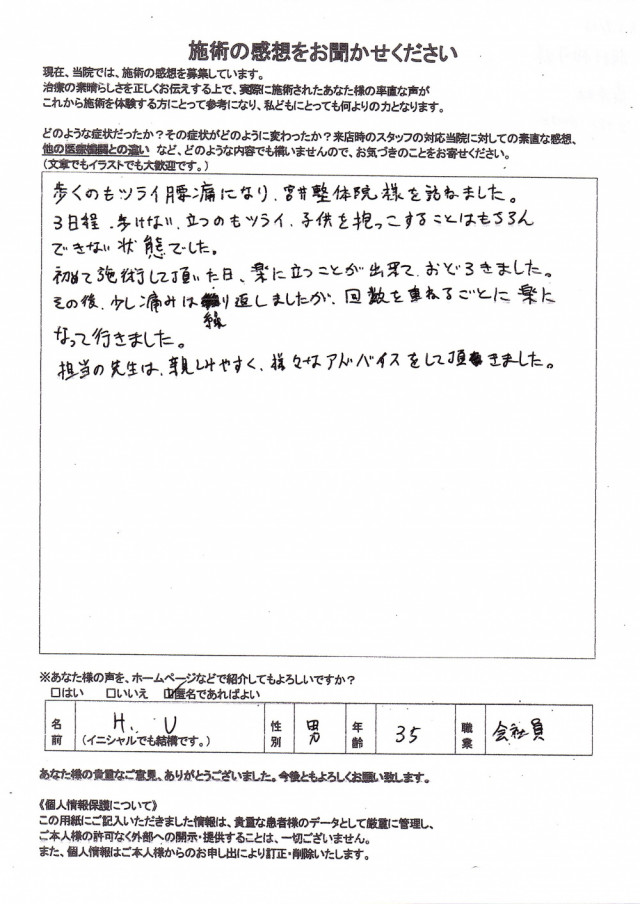 施術の感想をお聞かせください
現在、当院では、施術の感想を募集しています。
治療の素晴らしさを正しくお伝えする上で、実際に施術されたあなた様の率直な声が
これから施術を体験する方にとって参考になり、私どもにとっても何よりの力となります。
どのような症状だったか？その症状がどのように変わったか？来店時のスタッフの対応当院に対しての素直な感想、
他の医療機関との違い など、どのような内容でも構いませんので、お気づきのことをお寄せください。
（文章でもイラストでも大歓迎です。）
歩くのもツライ腰痛になり、宮井整体院様を訪ねました。
3日程、歩けない、立つのもツライ、子供を抱っこすることはもちろん
できない状態でした。
初めて施術して頂いた日、楽に立つことが出来て、おどろきました。
その後、少し痛みは繰り返しましたが、回数を重ねるごとに楽に
なって行きました。
担当の先生は、親しみやすく、様々なアドバイスをして頂きました。
※あなた様の声を、ホームページなどで紹介してもよろしいですか？
□はい □いいえ ☑匿名であればよい
名前 H. U (イニシャルでも結構です。) 性別 男 年齢 35 職業 会社員
あなた様の貴重なご意見、ありがとうございました。今後ともよろしくお願い致します。
《個人情報保護について》
この用紙にご記入いただきました情報は、貴重な患者様のデータとして厳重に管理し、
ご本人様の許可なく外部への開示・提供することは、一切ございません。
また、個人情報はご本人様からのお申し出により訂正・削除いたします。